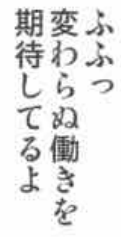 ふふっ
変わらぬ働きを
期待してるよ